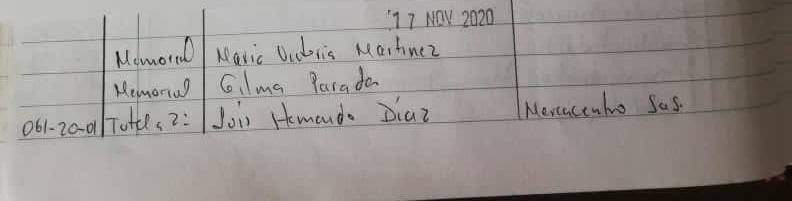 17 NOV 2020
Memorial Maria Victoria Martinez
Memorial Gilma Parada
061-20-01 Tutela 2: Luis Hernando Díaz Mercacentro Sas.